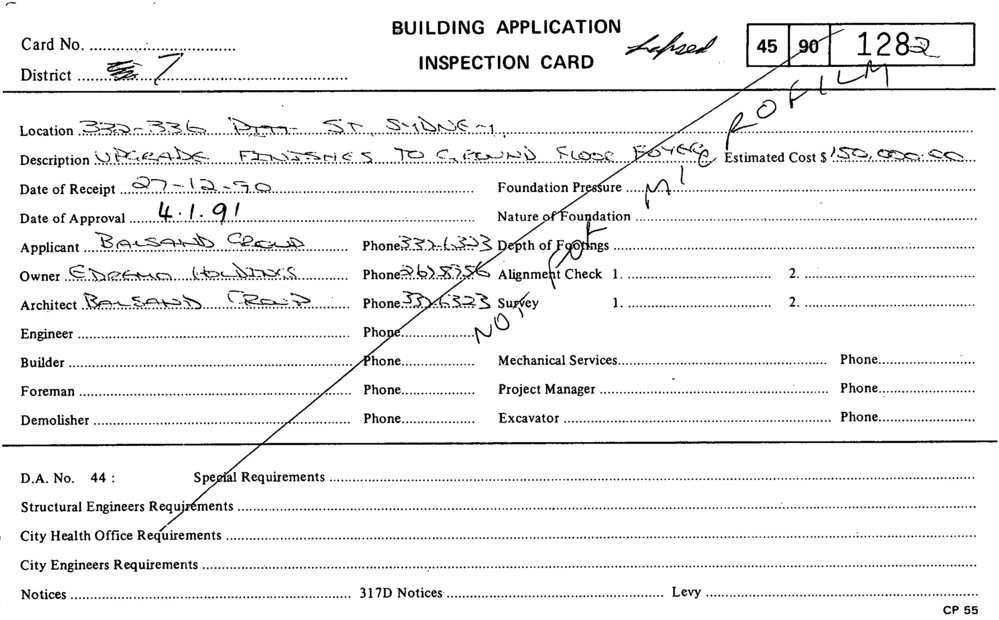 BUILDING APPLICATION
INSPECTION CARD
Lapsed
45 90 1282
Card No.
District 7
NOT FOR MICROFILM
Location 332-336 PITT ST, SYDNEY,
Description UPGRADE FINISHES TO GROUND FLOOR FOYER Estimated Cost $ 150,000.00
Date of Receipt 27-12-90 Foundation Pressure
Date of Approval 4.1.91 Nature of Foundation
Applicant BALSAND CROUP Phone 3326323 Depth of Footings
Owner HOLDINGS Phone 2678756 Alignment Check 1. 2.
Architect BALSAND CROUP Phone 3326323 Survey 1. 2.
Engineer Phone
Builder Phone Mechanical Services Phone
Foreman Phone Project Manager Phone
Demolisher Phone Excavator Phone
D.A. No. 44 : Special Requirements
Structural Engineers Requirements
City Health Office Requirements
City Engineers Requirements
Notices 317D Notices Levy
CP 55